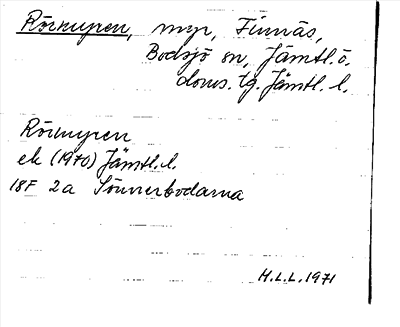 Rörmyren, myr, Finnäs,
Bodsjö sn, Jämtl. ö.
doms. tg. Jämtl. l.
Rörmyren
ek (1970) Jämtl. l.
18F 2a Sönnerbodarna
H.L.L. 1971